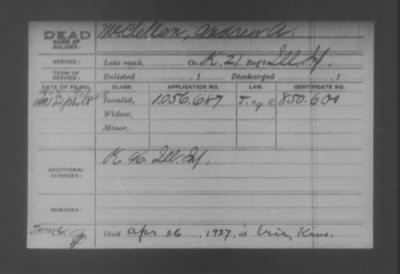 DEAD
NAME OF
SOLDIER:
McClellan, Andrew A.
SERVICE:
Late rank, Co. K, 21 Reg't Ill. Inf.
TERM OF
SERVICE:
Enlisted , 1 Discharged , 1
DATE OF FILING. CLASS. APPLICATION NO. LAW. CERTIFICATE NO.
1891 Invalid, 1.056.687 850.601
Widow,
Minor,
ADDITIONAL
SERVICES:
K Ill. Inf.
REMARKS:
Died Apr 26, 1927, at Erie, Kans.